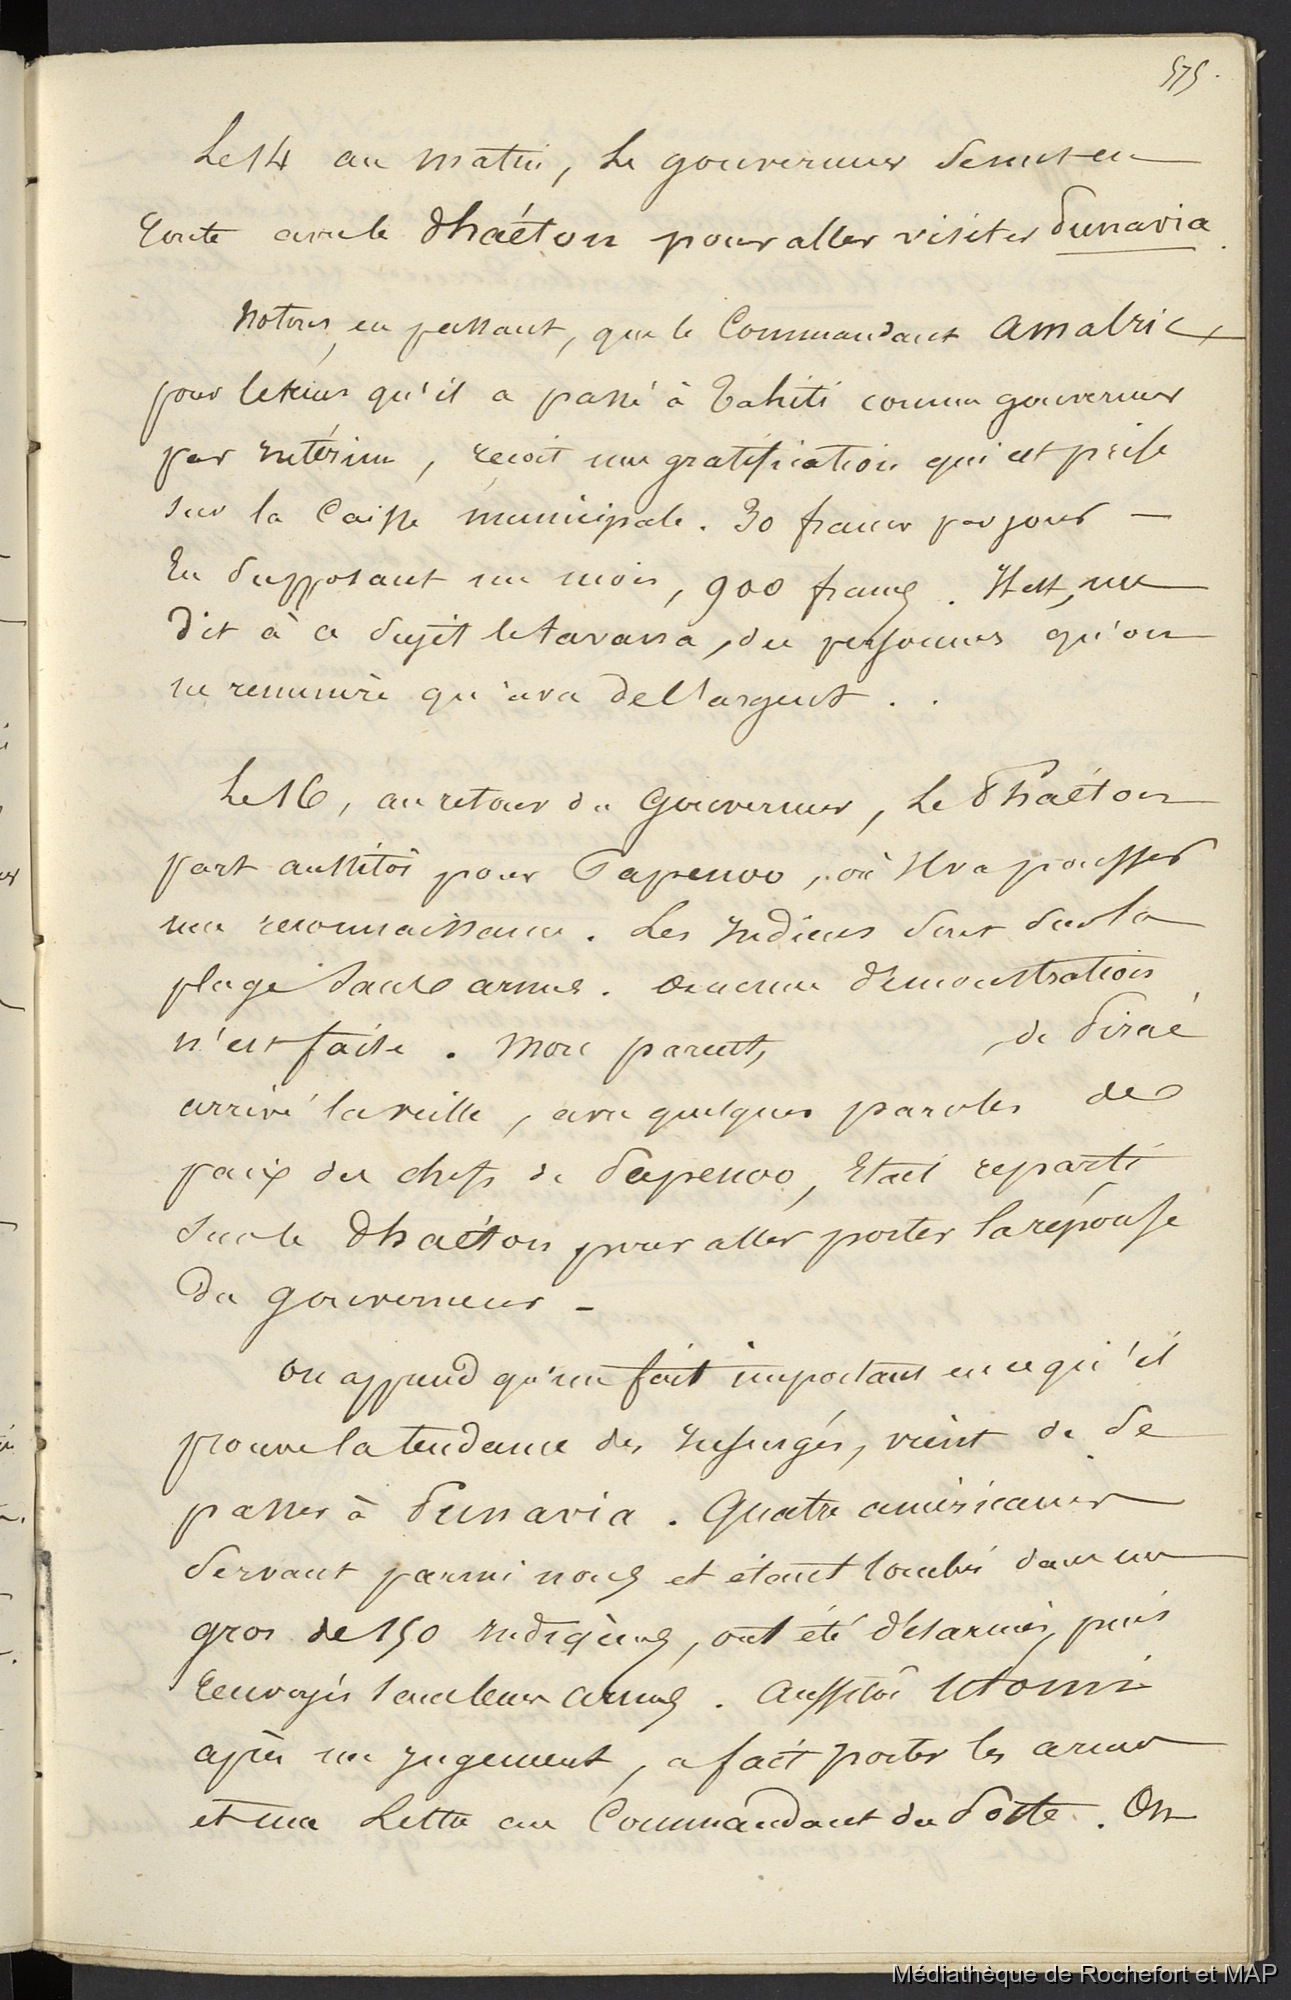 575.
Le 14 au matin, le gouverneur se met en
route avec le Phaéton pour aller visiter Punavia.
Notons, en passant, que le Commandant Amalric,
pour le tems qu'il a passé à Tahiti comme gouverneur
par intérim, reçoit une gratification qui est prise
sur la Caisse municipale. 30 francs par jour —
En supposant un mois, 900 francs. Il est, me
dit à ce sujet le tavana, des personnes qu'on
ne rémunère qu'avec de l'argent . .
Le 16, au retour du Gouverneur, le Phaéton
part aussitôt pour Papenoo, où il va pousser
une reconnaissance. Les Indiens sont sur la
plage sans armes. Aucune démonstration
n'est faite. Mon parent, , de Piraé
arrivé la veille, avec quelques paroles de
paix des chefs de Papenoo, était reparti
sur le Phaéton pour aller porter la réponse
du gouverneur —
On apprend qu'un fait important en ce qu'il
prouve la tendance des insurgés, vient de se
passer à Punavia. Quatre américains
servant parmi nous et étant tombés dans un
gros de 150 indigènes, ont été désarmés, puis
renvoyés sans leurs armes. Aussitôt Utomi
après un jugement, a fait porter les armes
et une lettre au Commandant du Poste. On
Médiathèque de Rochefort et MAP